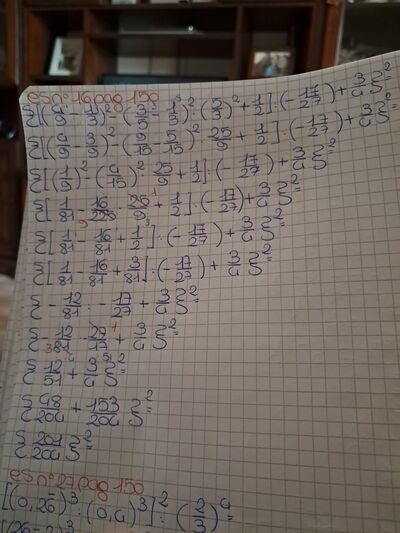 es n° 16 pag. 150
{[(4/9 - 1/3)² - (3/5 - 1/3)² : (3/5)² + 1/2] : (-17/27) + 3/4}² =
{[(4/9 - 3/9)² - (9/15 - 5/15)² · 25/9 + 1/2] : (-17/27) + 3/4}² =
{[(1/9)² - (4/15)² · 25/9 + 1/2] : (-17/27) + 3/4}² =
{[1/81 - 16/225 · 25/9 + 1/2] : (-17/27) + 3/4}² =
{[1/81 - 16/81 + 1/2] : (-17/27) + 3/4}² =
{[1/81 - 16/81 + 3/81] : (-17/27) + 3/4}² =
{-12/81 : -17/27 + 3/4}² =
{12/81 · 27/17 + 3/4}² =
{12/51 + 3/4}² =
{48/204 + 153/204}² =
{201/204}² =
es n° 27 pag. 150
[(0,26)³ : (0,4)³]² : (2/3)⁴ =